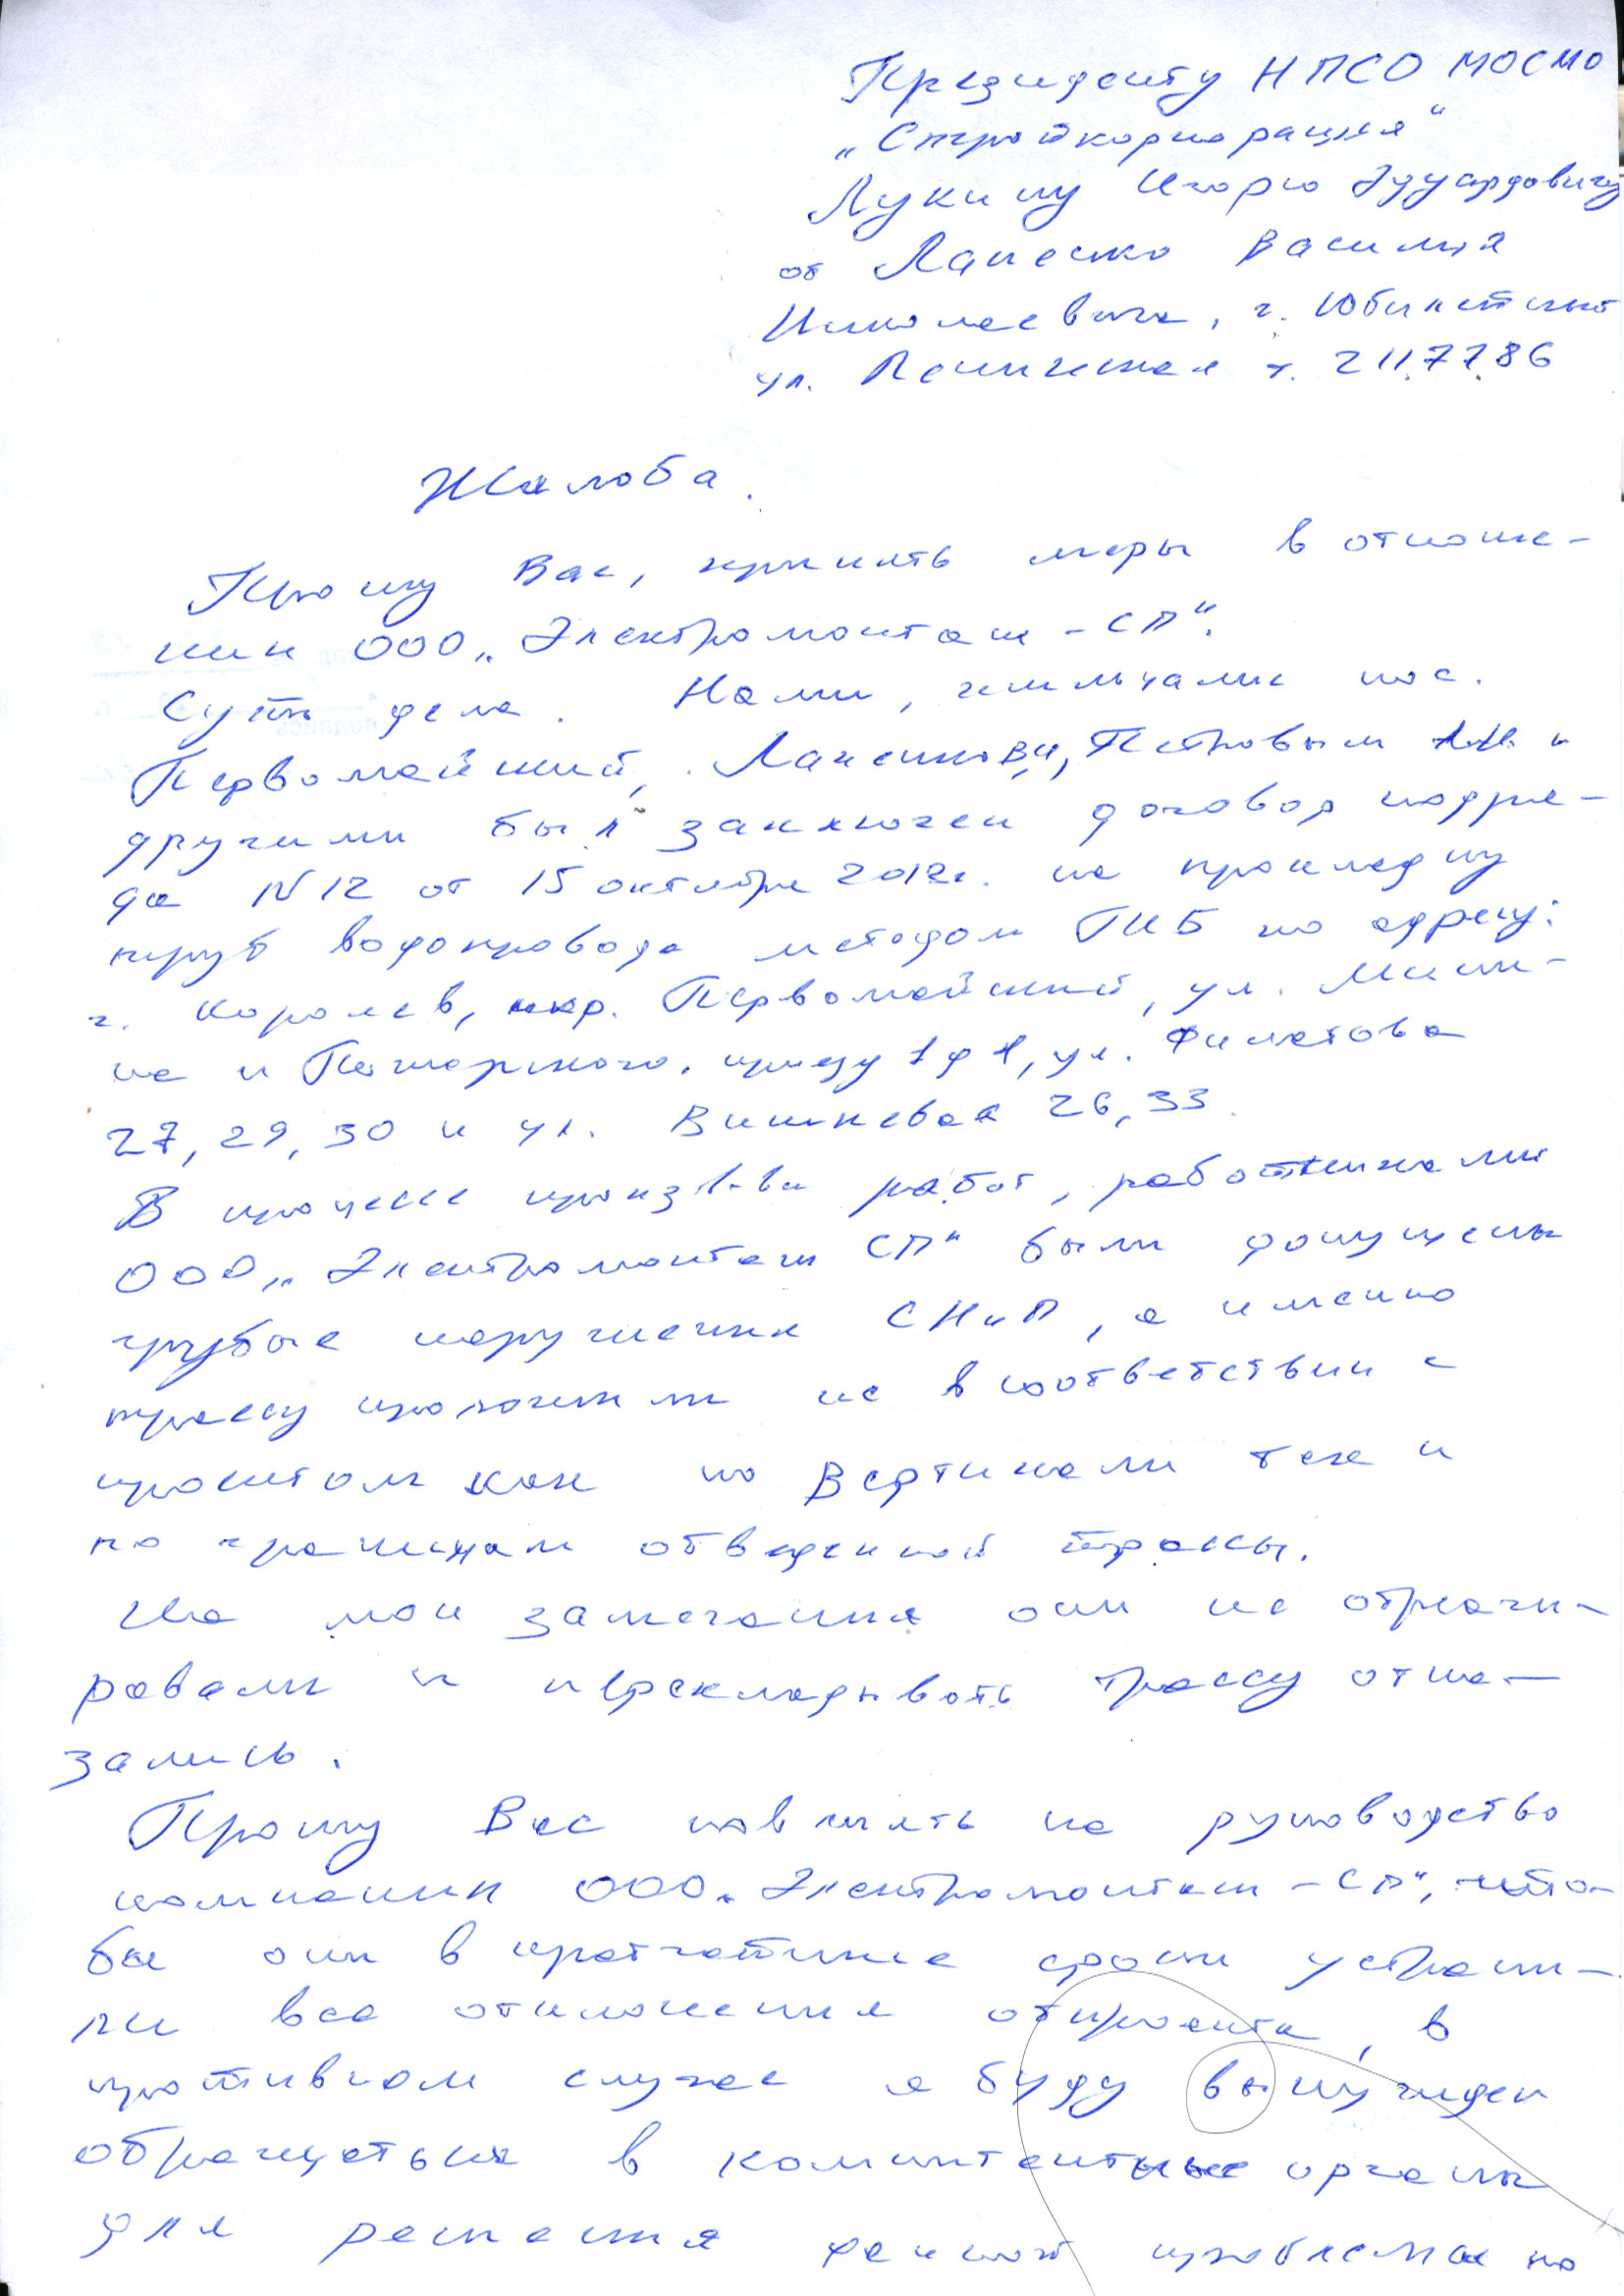 Президенту НПСО МОСМО
„Стройкорпорация"
Лукину Игорю Эдуардовичу
от Лапенко Василия
Николаевича, г. Юбилейный
ул. Ленинская т. 2117786
Жалоба.
Прошу Вас, принять меры в отноше-
нии ООО „Электромонтаж-СП".
Суть дела. Нами, жильцами пос.
Первомайский, Петровым и
другими был заключен договор подря-
да N12 от 15 октября 2012г. на прокладку
труб водопровода методом ГНБ по адресу:
г. Королев, мкр. Первомайский, ул. Мини-
на и Пожарского, ул. Филатова
27, 29, 30 и ул. Вишневая 26, 33.
В процессе произв-ва работ, работниками
ООО „Электромонтаж СП" были допущены
грубые нарушения СНиП, а именно
трассу проложили не в соответствии с
проектом как по вертикали так и
по границам отведенной трассы.
На мои замечания они не отреаги-
ровали и перекладывать трассу отка-
зались.
Прошу Вас повлиять на руководство
компании ООО „Электромонтаж-СП", что-
бы они в кратчайшие сроки устрани-
ли все отклонения от проекта, в
противном случае я буду вынужден
обращаться в компитентные органы
для решения данной проблемы по